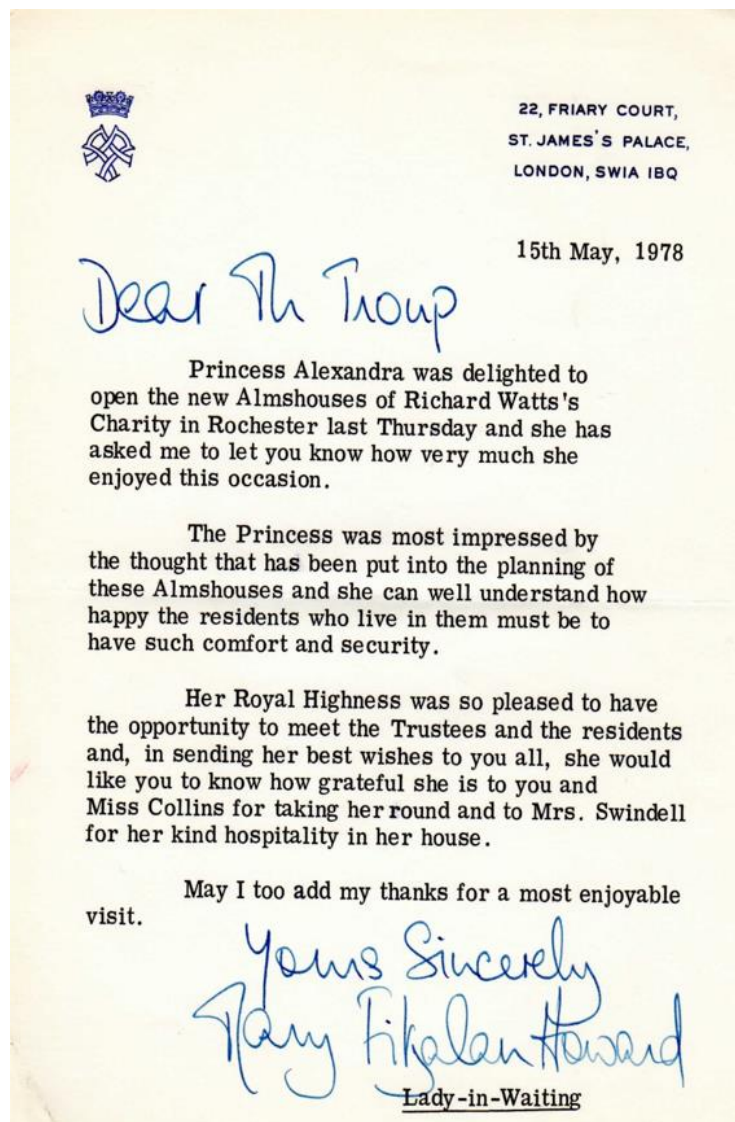 22, FRIARY COURT,
ST. JAMES'S PALACE,
LONDON, SW1A 1BQ
15th May, 1978
Dear Mr Troup
Princess Alexandra was delighted to
open the new Almshouses of Richard Watts's
Charity in Rochester last Thursday and she has
asked me to let you know how very much she
enjoyed this occasion.
The Princess was most impressed by
the thought that has been put into the planning of
these Almshouses and she can well understand how
happy the residents who live in them must be to
have such comfort and security.
Her Royal Highness was so pleased to have
the opportunity to meet the Trustees and the residents
and, in sending her best wishes to you all, she would
like you to know how grateful she is to you and
Miss Collins for taking her round and to Mrs. Swindell
for her kind hospitality in her house.
May I too add my thanks for a most enjoyable
visit.
Yours Sincerely
Mary Fitzalan Howard
Lady-in-Waiting